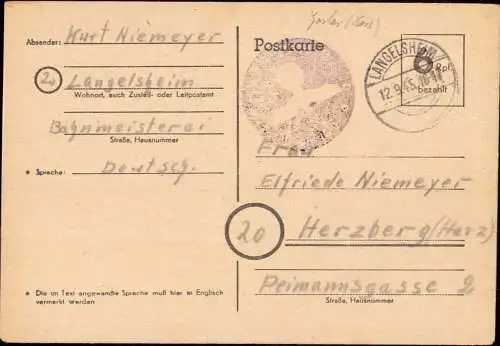 Absender: Kurt Niemeyer
20 Langelsheim
Wohnort, auch Zustell- oder Leitpostamt
Bahnmeisterei
Straße, Hausnummer
* Sprache: Deutsch.
* Die im Text angewandte Sprache muß hier in Englisch
vermerkt werden
(Harz)
Postkarte
LANGELSHEIM
12.9.45
6 Rpf.
bezahlt
Frau
Elfriede Niemeyer
20 Herzberg (Harz)
Peimannsgasse 2
Straße, Hausnummer